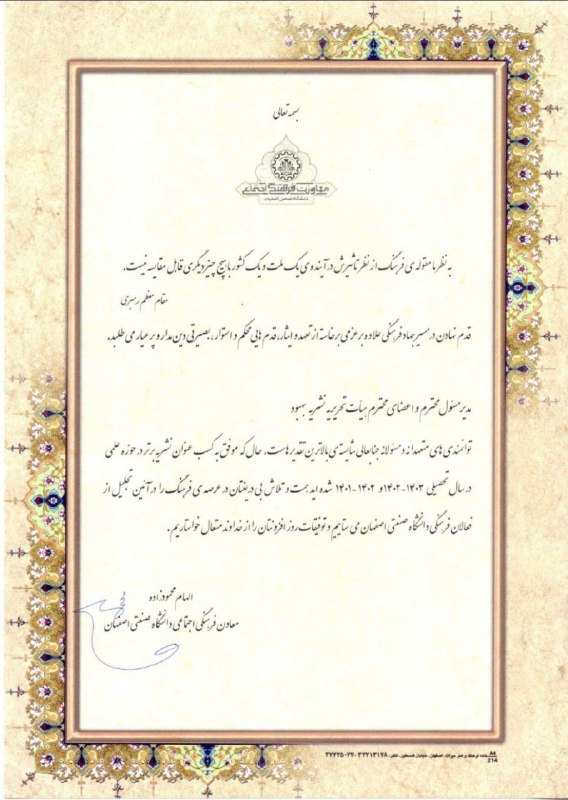 بسمه تعالی
معاونت فرهنگی اجتماعی
دانشگاه صنعتی اصفهان
به نظر ما مقوله ی فرهنگ از نظر تاثیرش در آینده ی یک ملت و یک کشور با هیچ چیز دیگری قابل مقایسه نیست.
مقام معظم رهبری
قدم نهادن در مسیر جهاد فرهنگی علاوه بر عزمی برخاسته از تعهد و ایثار، قدم هایی محکم و استوار، بصیرتی دین مدار و پر عیار می طلبد.
مدیر مسئول محترم و اعضای محترم هیأت تحریریه نشریه بهبود
توانمندی های متعهدانه و مسئولانه جنابعالی شایسته ی بالاترین تقدیرهاست. حال که موفق به کسب عنوان نشریه برتر در حوزه علمی
در سال تحصیلی ۱۴۰۳-۱۴۰۲ و ۱۴۰۲-۱۴۰۱ شده اید همت و تلاش بی دریغتان در عرصه ی فرهنگ را در آئین تجلیل از
فعالان فرهنگی دانشگاه صنعتی اصفهان می ستاییم و توفیقات روز افزونتان را از خداوند متعال خواستاریم.
الهام محمودزاده
معاون فرهنگی اجتماعی دانشگاه صنعتی اصفهان
خانه فرهنگ و هنر میراث، اصفهان، خیابان فلسطین، تلفن: ۳۲۲۱۳۱۷۸-۳۲۲۲۵۰۲۷
214